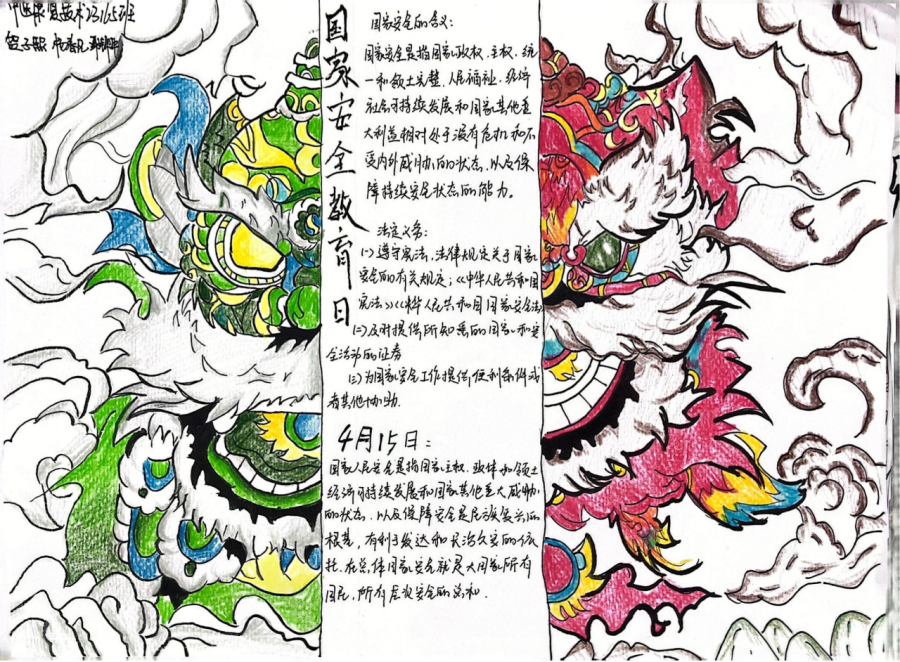 国家安全教育日
国家安全的含义：
国家安全是指国家政权、主权、统
一和领土完整、人民福祉、经济
社会可持续发展和国家其他重
大利益相对处于没有危机和不
受内外威胁的状态，以及保
障持续安全状态的能力。
法定义务：
(一)遵守宪法、法律规定关于国家
安全的有关规定；《中华人民共和国
宪法》《中华人民共和国国家安全法》
(二)及时提供所知悉的国家和安
全活动的证券
(三)为国家安全工作提供便利条件或
者其他协助.
4月15日：
国家人民安全是指国家主权、政体和领土
经济可持续发展和国家其他重大威胁
的状态、以及保障安全是民族复兴的
根基，有利于发达和长治久安的依
托.在总体国家安全就是大国家所有
国民，所有层次安全的总和.